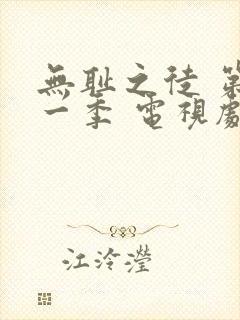 無耻之徒 第
一季 電視劇
江泠瀅